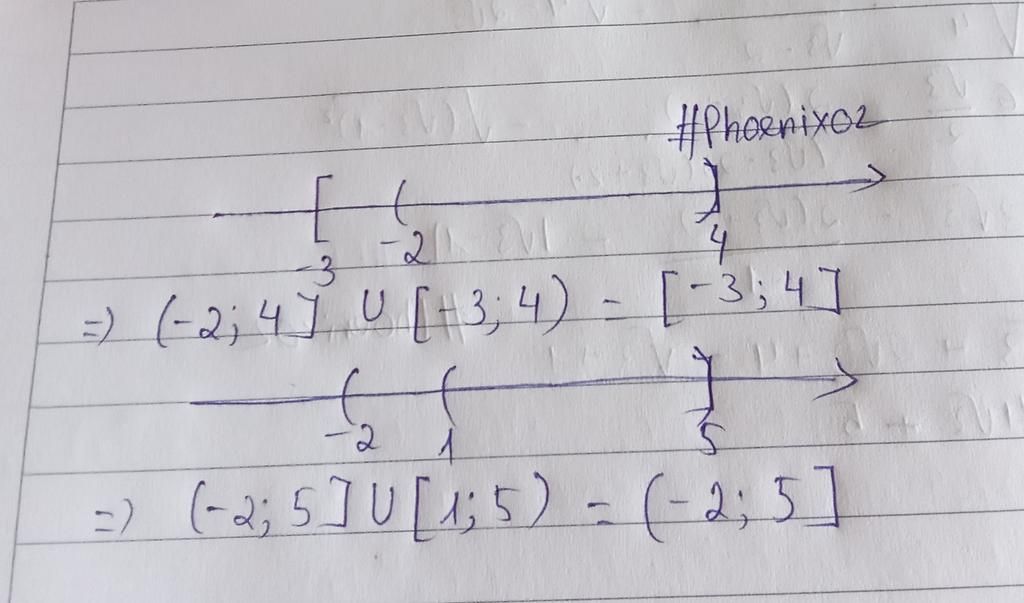 #Phoenix02
-3 -2 4
=) (-2; 4] U [-3; 4) = [-3; 4]
-2 1 5
=) (-2; 5] U [1; 5) = (-2; 5]